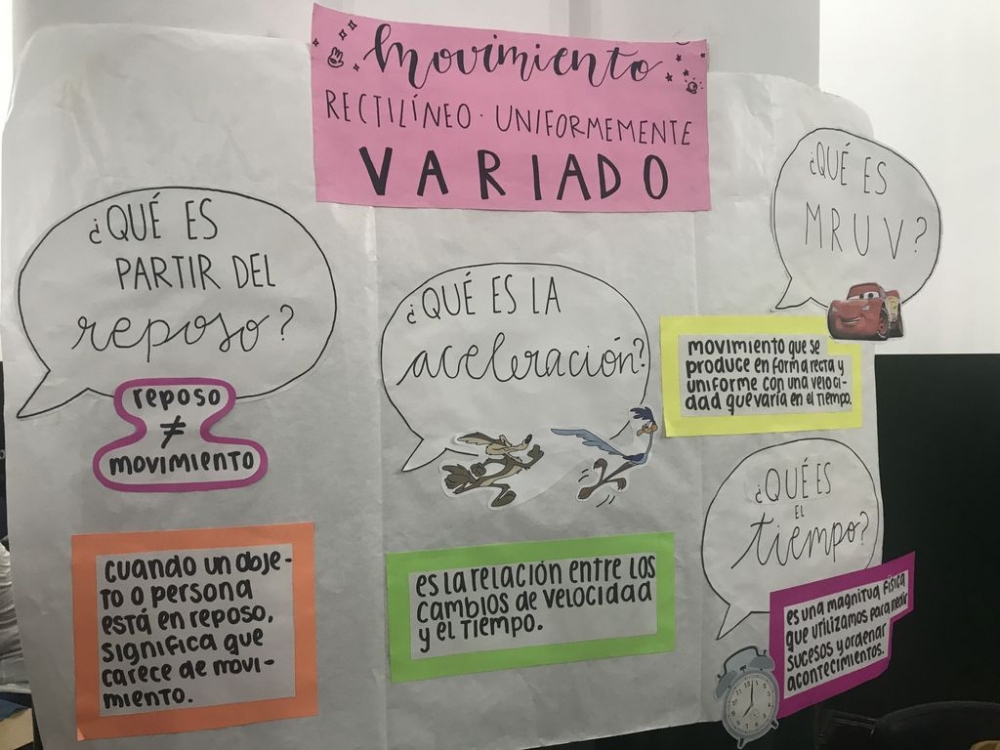 movimiento
RECTILÍNEO · UNIFORMEMENTE
VARIADO
¿QUÉ ES
PARTIR DEL
reposo?
reposo
≠
movimiento
cuando un obje-
to o persona
está en reposo,
significa que
carece de movi-
miento.
¿QUÉ ES LA
aceleración?
es la relación entre los
cambios de velocidad
y el tiempo.
¿QUÉ ES
MRUV?
movimiento que se
produce en forma recta y
uniforme con una veloci-
dad que varía en el tiempo.
¿QUÉ ES
EL
tiempo?
es una magnitud física
que utilizamos para medir
sucesos y ordenar
acontecimientos.